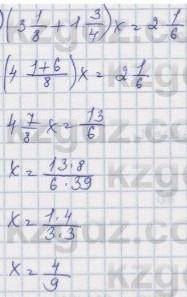 )(3 1/8 + 1 3/4)x = 2 1/6
(4 (1+6)/8)x = 2 1/6
4 7/8 x = 13/6
x = (13·8)/(6·39)
x = (1·4)/(3·3)
x = 4/9